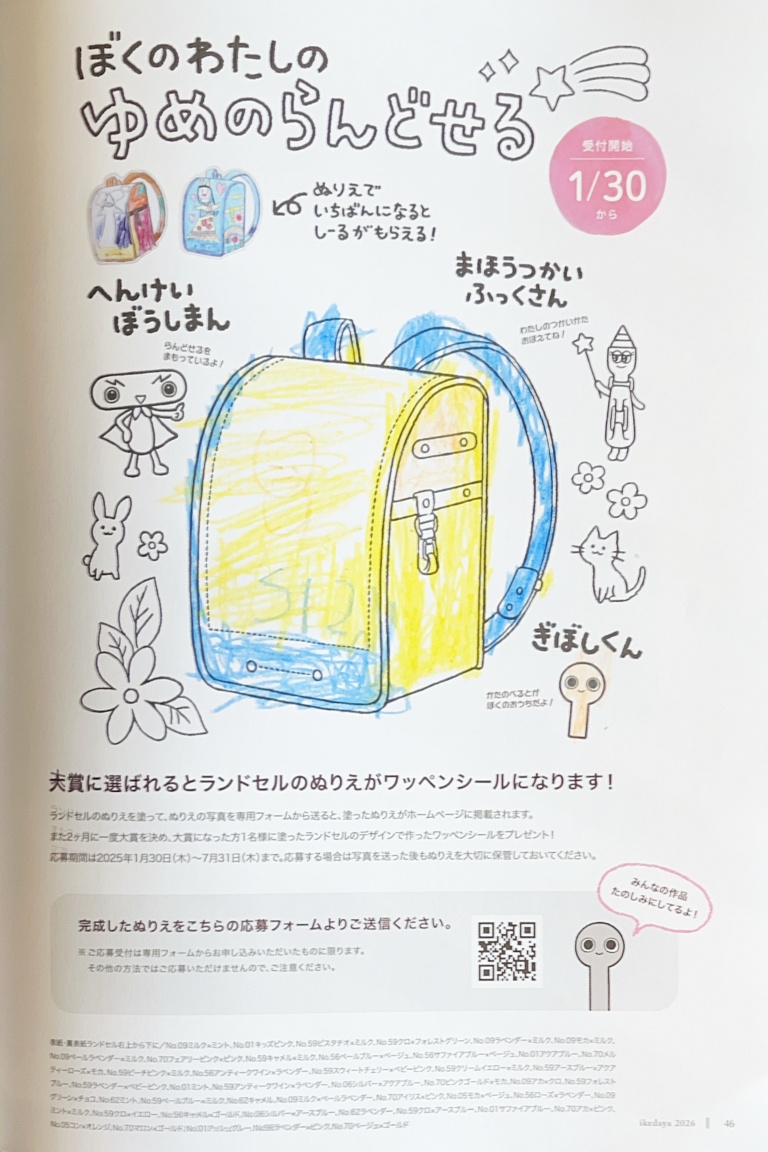 ぼくのわたしの
ゆめのらんどせる
受付開始
1/30
から
ぬりえで
いちばんになると
しーるがもらえる!
まほうつかい
ふっくさん
わたしのつかいかた
おぼえてね!
へんけい
ぼうしまん
らんどせるを
まもっているよ!
ぎぼしくん
かたのべるとが
ぼくのおうちだよ!
大賞に選ばれるとランドセルのぬりえがワッペンシールになります!
ランドセルのぬりえを塗って、ぬりえの写真を専用フォームから送ると、塗ったぬりえがホームページに掲載されます。
また2ヶ月に一度大賞を決め、大賞になった方1名様に塗ったランドセルのデザインで作ったワッペンシールをプレゼント!
応募期間は2025年1月30日(木)〜7月31日(木)まで。応募する場合は写真を送った後もぬりえを大切に保管しておいてください。
みんなの作品
たのしみにしてるよ!
完成したぬりえをこちらの応募フォームよりご送信ください。
※ご応募受付は専用フォームからお申し込みいただいたものに限ります。
その他の方法ではご応募いただけませんので、ご注意ください。
表紙・裏表紙ランドセル右上から下に/No.09ミルク×ミント、No.01キッズピンク、No.59ピスタチオ×ミルク、No.59クロ×フォレストグリーン、No.09ラベンダー×ミルク、No.09モカ×ミルク、
No.09ペールラベンダー×ミルク、No.70フェアリーピンク×ピンク、No.59キャメル×ミルク、No.56ペールブルー×ベージュ、No.56サファイアブルー×ベージュ、No.01アクアブルー、No.70メル
ティーローズ×モカ、No.59ピーチピンク×ミルク、No.56アンティークワイン×ラベンダー、No.59スウィートチェリー×ベビーピンク、No.59クリームイエロー×ミルク、No.59アースブルー×アクア
ブルー、No.59ラベンダー×ベビーピンク、No.01ミント、No.59アンティークワイン×ラベンダー、No.06シルバー×アクアブルー、No.70ピンクゴールド×モカ、No.09アカ×クロ、No.59フォレスト
グリーン×チョコ、No.62ミント、No.59ペールブルー×ミルク、No.62キャメル、No.09ミルク×ペールラベンダー、No.70アイリス×ピンク、No.05モカ×ベージュ、No.56ローズ×ラベンダー、No.09
ミント×ミルク、No.59クロ×イエロー、No.56キャメル×ゴールド、No.06シルバー×アースブルー、No.62ラベンダー、No.59クロ×アースブルー、No.01サファイアブルー、No.70アカ×ピンク、
No.05コン×オレンジ、No.70マロン×ゴールド、No.01アッシュグレー、No.96ラベンダー×ピンク、No.70ベージュ×ゴールド
ikedaya 2026
46